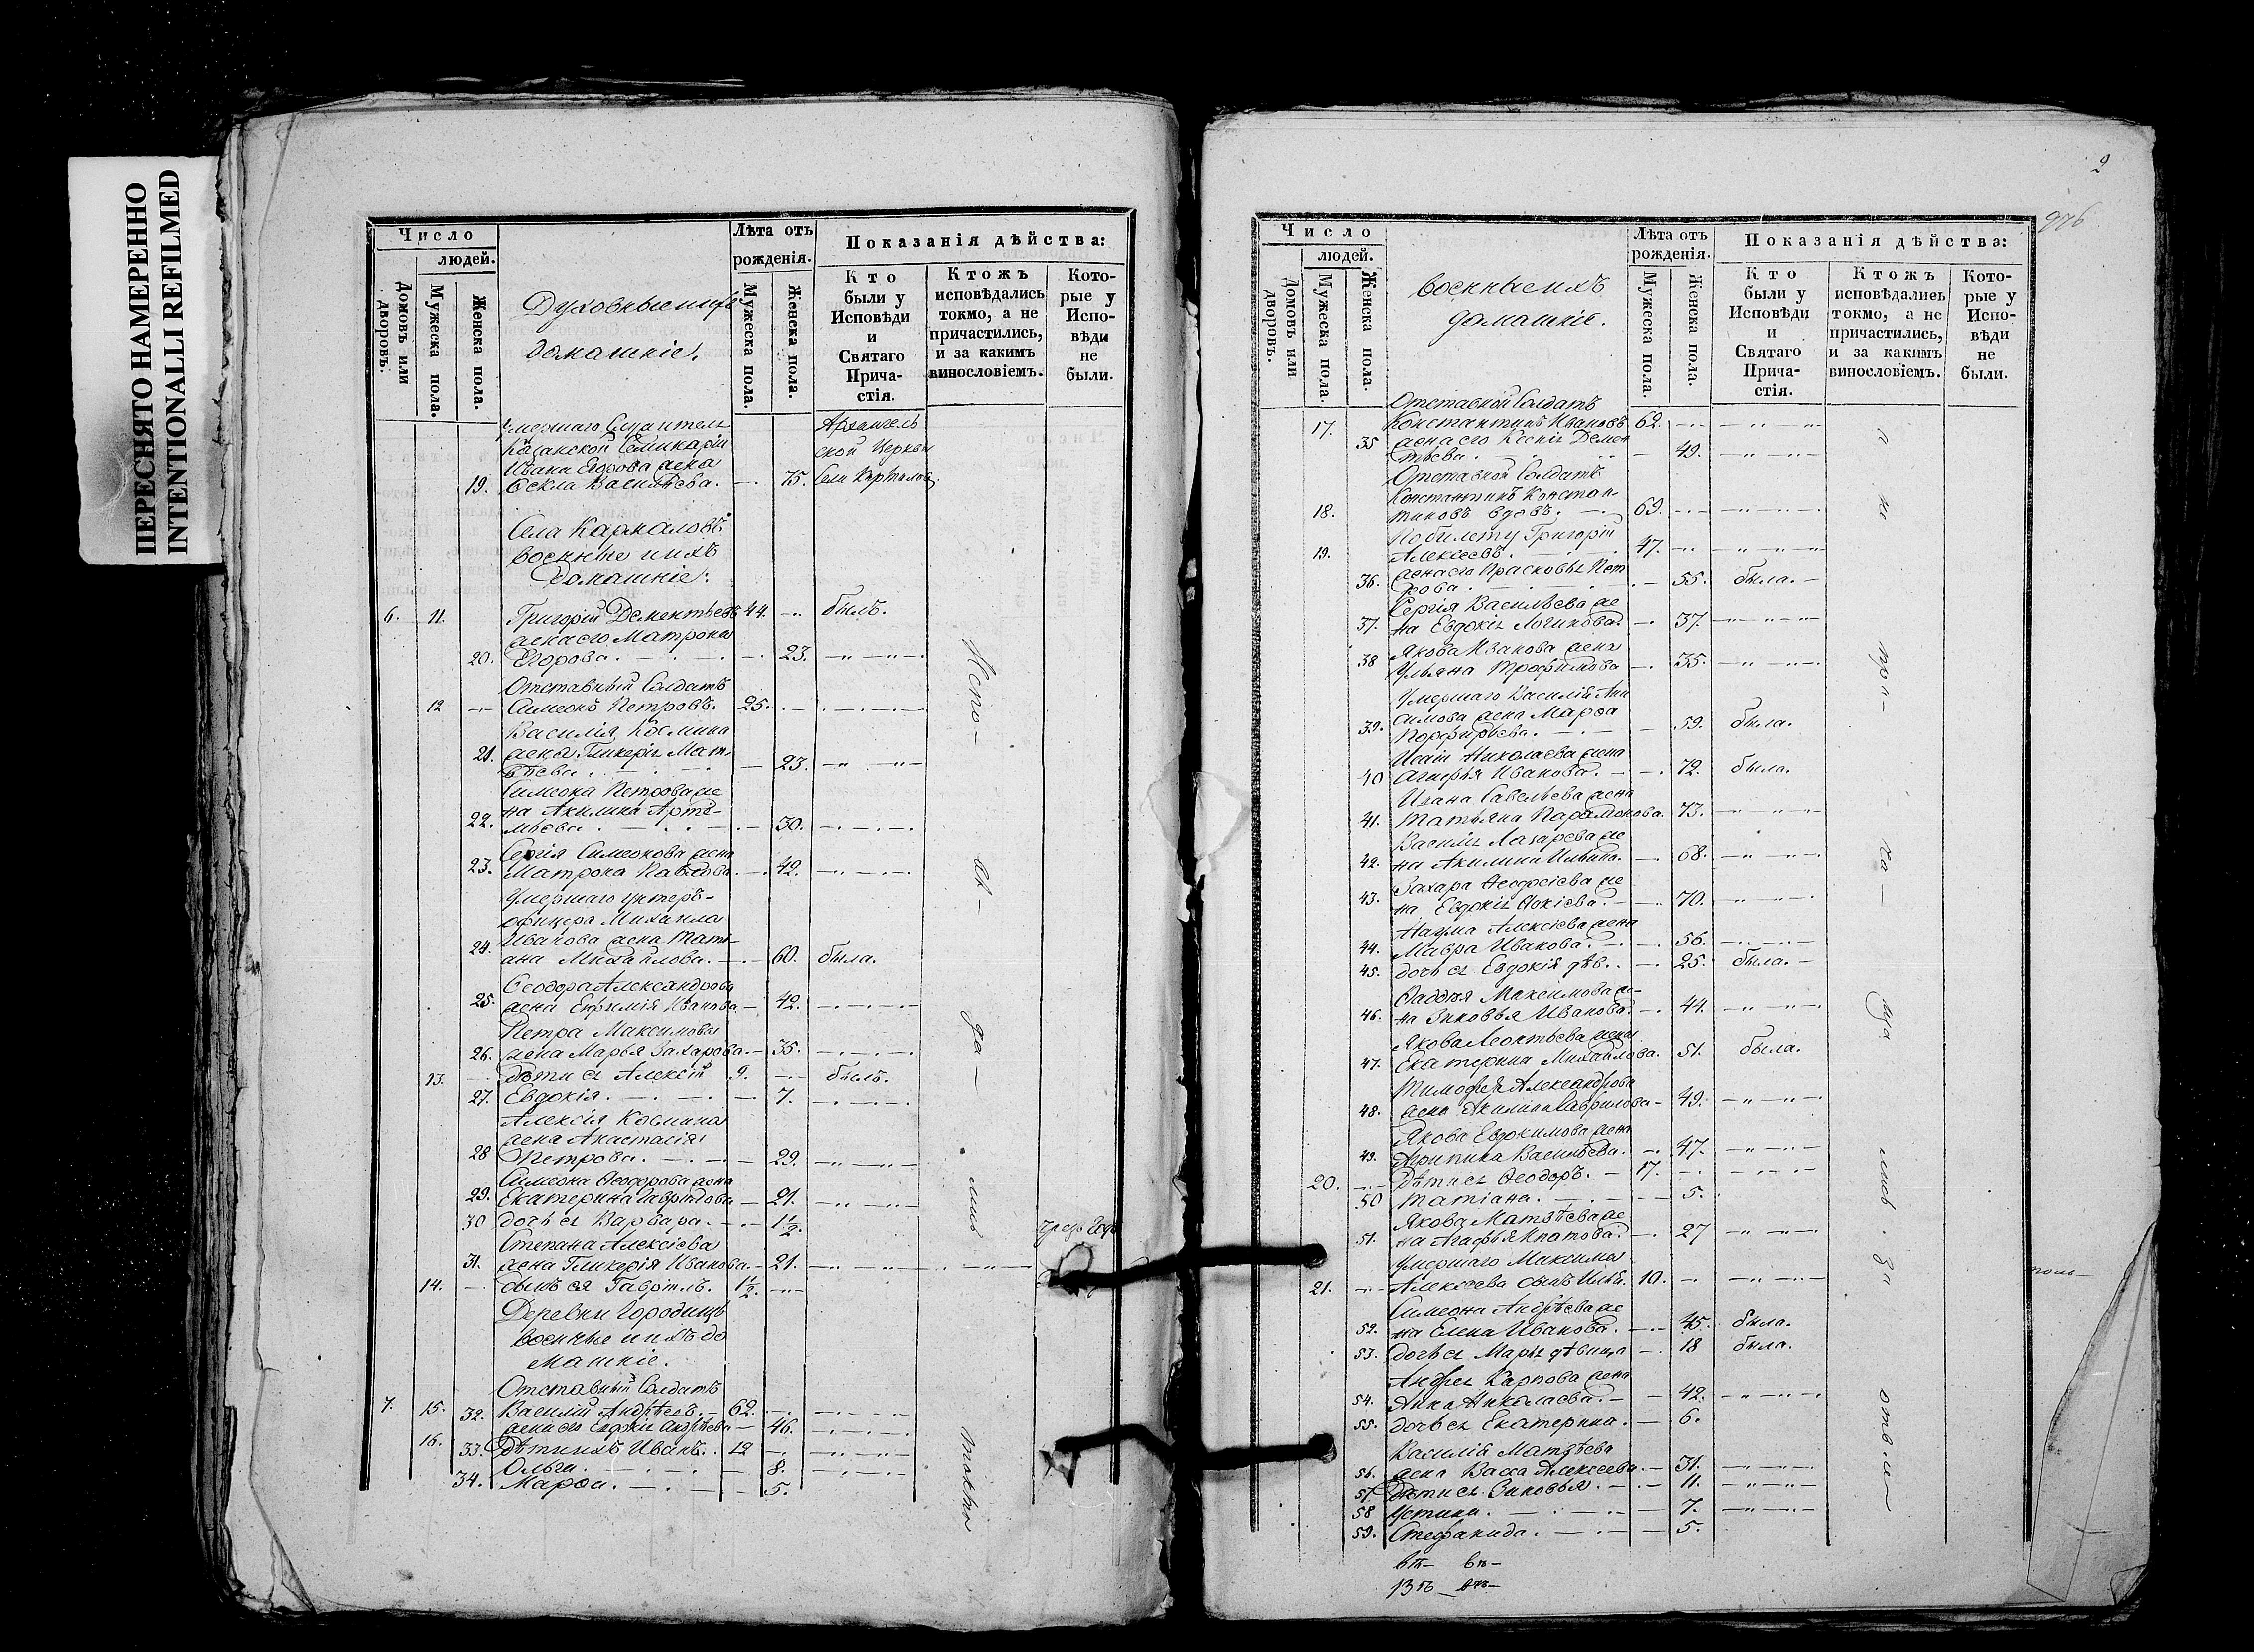 ПЕРЕСНЯТО НАМЕРЕННО
INTENTIONALLI REFILMED
Число
людей.
Домовъ или дворовъ.
Мужеска пола.
Женска пола.
Духовные и ихъ
домашніе.
Лѣта отъ
рожденія.
Мужеска пола.
Женска пола.
Показанія дѣйства:
Кто
были у
Исповѣди
и
Святаго
Прича-
стія.
Ктожъ
исповѣдались
токмо, а не
причастились,
и за какимъ
винословіемъ.
Кото-
рые у
Испо-
вѣди
не
были.
умершаго
Казанской Семинаріи
Ивана Егорова жена
19. Ѳекла Васильева. 75.
Архангель
ской Церкви
Села
военные и ихъ
домашніе:
6. 11. Григорій Дементьевъ 44. былъ.
жена его Матрона
20. Егорова. 23.
Отставный Солдатъ
12 Симеонъ Петровъ. 25.
Василія Космина
21. жена Гликерія Мат-
вѣева. 23.
Симеона Петрова же
22. на Акилина Арте-
мьева. 30.
Сергія Симеонова жена
23. Матрона Павлова. 42.
Умершаго унтеръ-
офицера Михаила
24. Иванова жена Тать-
ана Михайлова. 60. была.
Ѳеодора Александрова
25. жена Евфимія Иванова 42.
Петра Максимова
26. жена Марья Захарова. 35.
13. Дѣти ея Алексій 9. былъ.
27. Евдокія. 7.
Алексія Космина
жена Анастасія
28 Петрова. 29.
Симеона Ѳеодорова жена
29. Екатерина Гаврилова 21.
30 дочь ея Варвара. 1½.
Степана Алексіева
31. жена Гликерія Иванова. 21.
14. сынъ ея Гавріилъ. 1½.
Деревни Городищъ
военные и ихъ до
машніе.
Отставный Солдатъ
7. 15. Василій Андреевъ. 62.
32. жена его Евдокія Андреева 46.
16. Дѣти ихъ Иванъ. 12
33. Ольга. 8.
34. Марѳа. 5.
2
976
Число
людей.
Домовъ или дворовъ.
Мужеска пола.
Женска пола.
военные и ихъ
домашніе.
Лѣта отъ
рожденія.
Мужеска пола.
Женска пола.
Показанія дѣйства:
Кто
были у
Исповѣди
и
Святаго
Прича-
стія.
Ктожъ
исповѣдались
токмо, а не
причастились,
и за какимъ
винословіемъ.
Кото-
рые у
Испо-
вѣди
не
были.
Отставной Солдатъ
17. Константинъ Ивановъ 62.
35 жена его Ксенія Демен
тьева. 49.
Отставной Солдатъ
Константинъ Констан-
18. тиновъ вдовъ. 69.
По билету Григорій
19. Алексеевъ. 47.
36. жена его Прасковья Пет
рова. 55. была.
Сергія Васильева же
37. на Евдокія Логинова 37.
38 Якова Иванова жена
Ульяна Трофимова 35.
Умершаго Василія
39. жена Марѳа
Порфирьева. 59. была.
Николаева жена
40 Иванова. 72. была.
Ивана Савельева жена
41. Татьяна Парамонова. 73.
Василья Лазарева же
42. на Акилина Ильина. 68.
43. Захара Ѳеодосіева же
на Евдокія 70.
Наума Алексіева жена
44. Мавра Иванова. 56.
45. дочь ея Евдокія дѣв. 25. была.
Ѳаддея Максимова же-
46. на Зиновья Иванова. 44.
Якова Леонтьева жена
47. Екатерина Михайлова. 51. была.
Тимофея Александрова
48. жена Акилина Гаврилова 49.
Якова Евдокимова жена
49. Агрипина Васильева. 47.
20. Дѣти ея Ѳеодоръ. 17.
50 Татіана. 5.
Якова Матвѣева же
51. на Агафья Ипатова. 27
Умершаго Максима
21. Алексеева сынъ 10.
Симеона Андрѣева же
52. на Елена Иванова. 45. была.
53. дочь ея Марья дѣвица 18 была.
Андрея Карпова жена
54. Анна Николаева. 42.
55. дочь ея Екатерина. 6.
Василія Матвѣева
56. жена Васса Алексеева. 31.
57. Дѣти ея Зиновья. 11.
58 Устинья. 7.
59. Стефанида. 5.